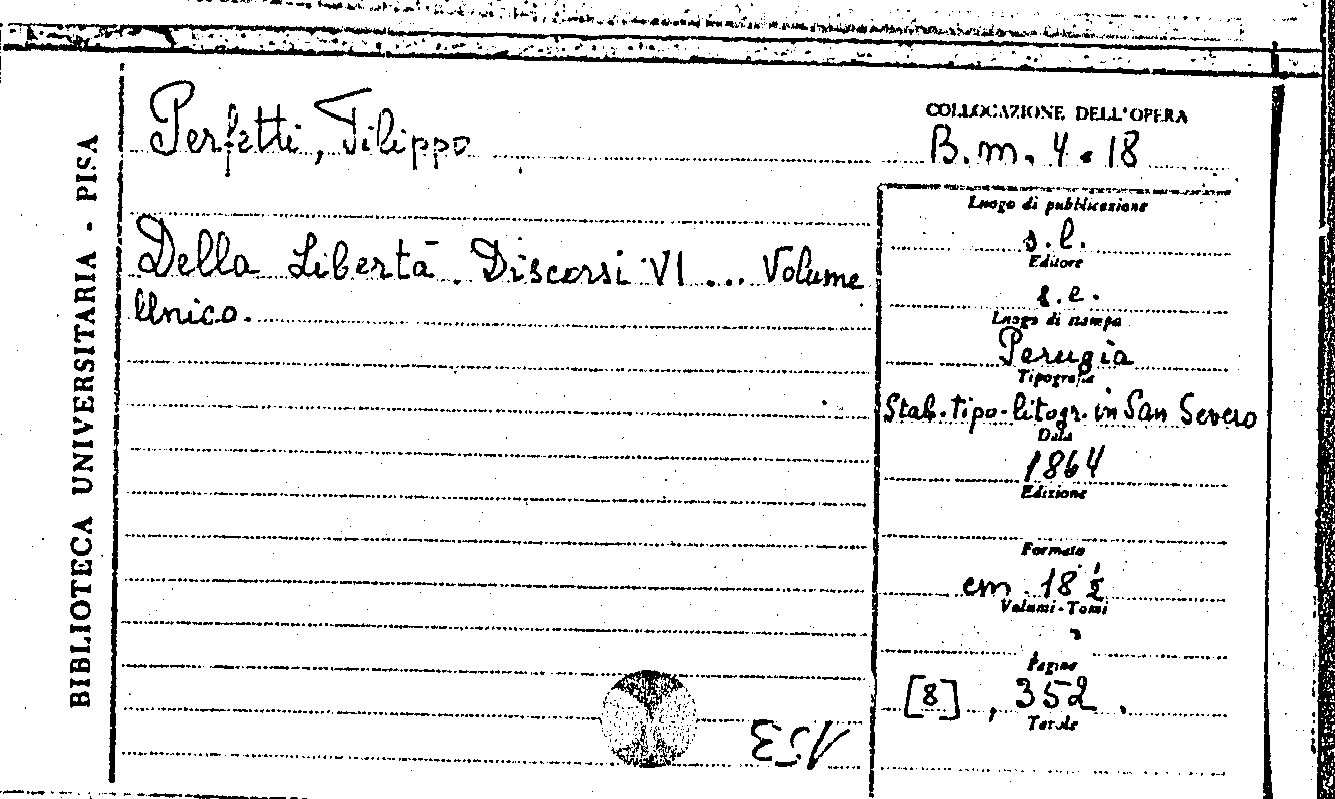 BIBLIOTECA UNIVERSITARIA - PISA
Perfetti, Filippo
Della Libertà. Discorsi VI ... Volume
Unico.
COLLOCAZIONE DELL'OPERA
B.m. 4.18
Luogo di pubblicazione
s.l.
Editore
s.e.
Luogo di stampa
Perugia
Tipografia
Stab. tipo-litogr. in San Severo
Data
1864
Edizione
Formato
cm. 18 ½
Volumi-Tomi
Pagine
[8], 352.
Tavole
153